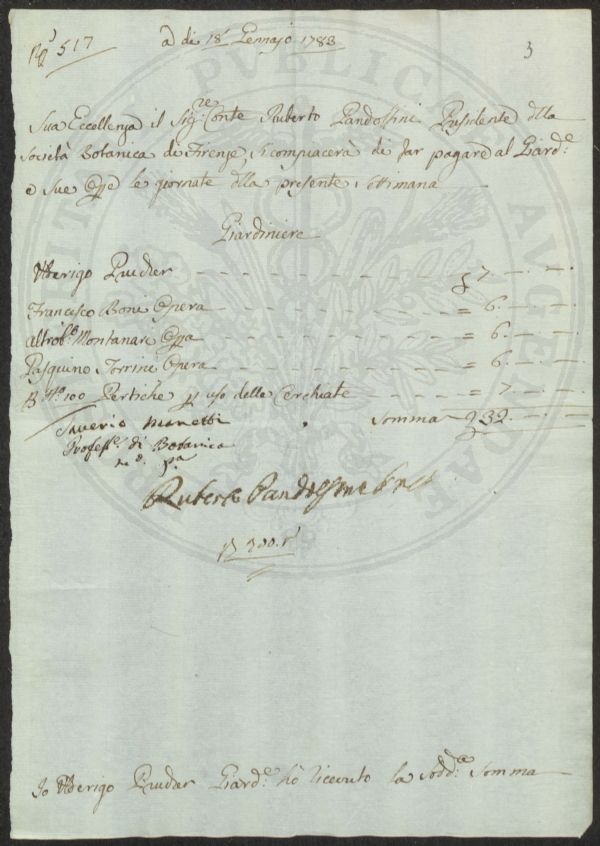 N.º 517
a di 18 Gennajo 1783
3
Sua Eccellenza il Sig.re Conte Ruberto Pandolfini Presidente della
Società Botanica di Firenze, si compiacerà di far pagare al Giard.e
e sue Opre le giornate della presente settimana
Giardiniere
Ulderigo - - - 7. - -
Francesco Boni Opera = 6. - -
Altro Montanari Opra = 6. - -
Pasquino Torrini Opera = 6. - -
P. N.º 100 Pertiche p uso delle Cerchiate = 7 - -
Saverio Manetti
Somma 32. - -
Profess.e di Botanica
Ruberto Pandolfini Pres.
300.
Io Ulderigo Giard.e hò ricevuto la sodd.a Somma
PUBLICAE
AUGENDAE